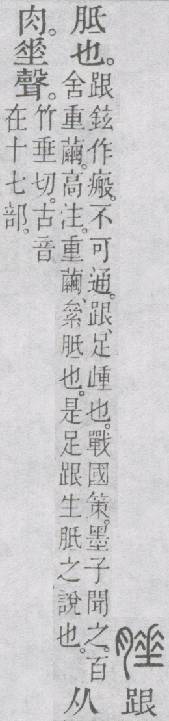 腄跟
胝也。
跟鉉作瘢。不可通。跟、足歱也。戰國策。墨子聞之。百
舍重繭。高注。重繭、絫胝也。是足跟生胝之說也。
从
肉。𡍮聲。
竹垂切。古音
在十七部。